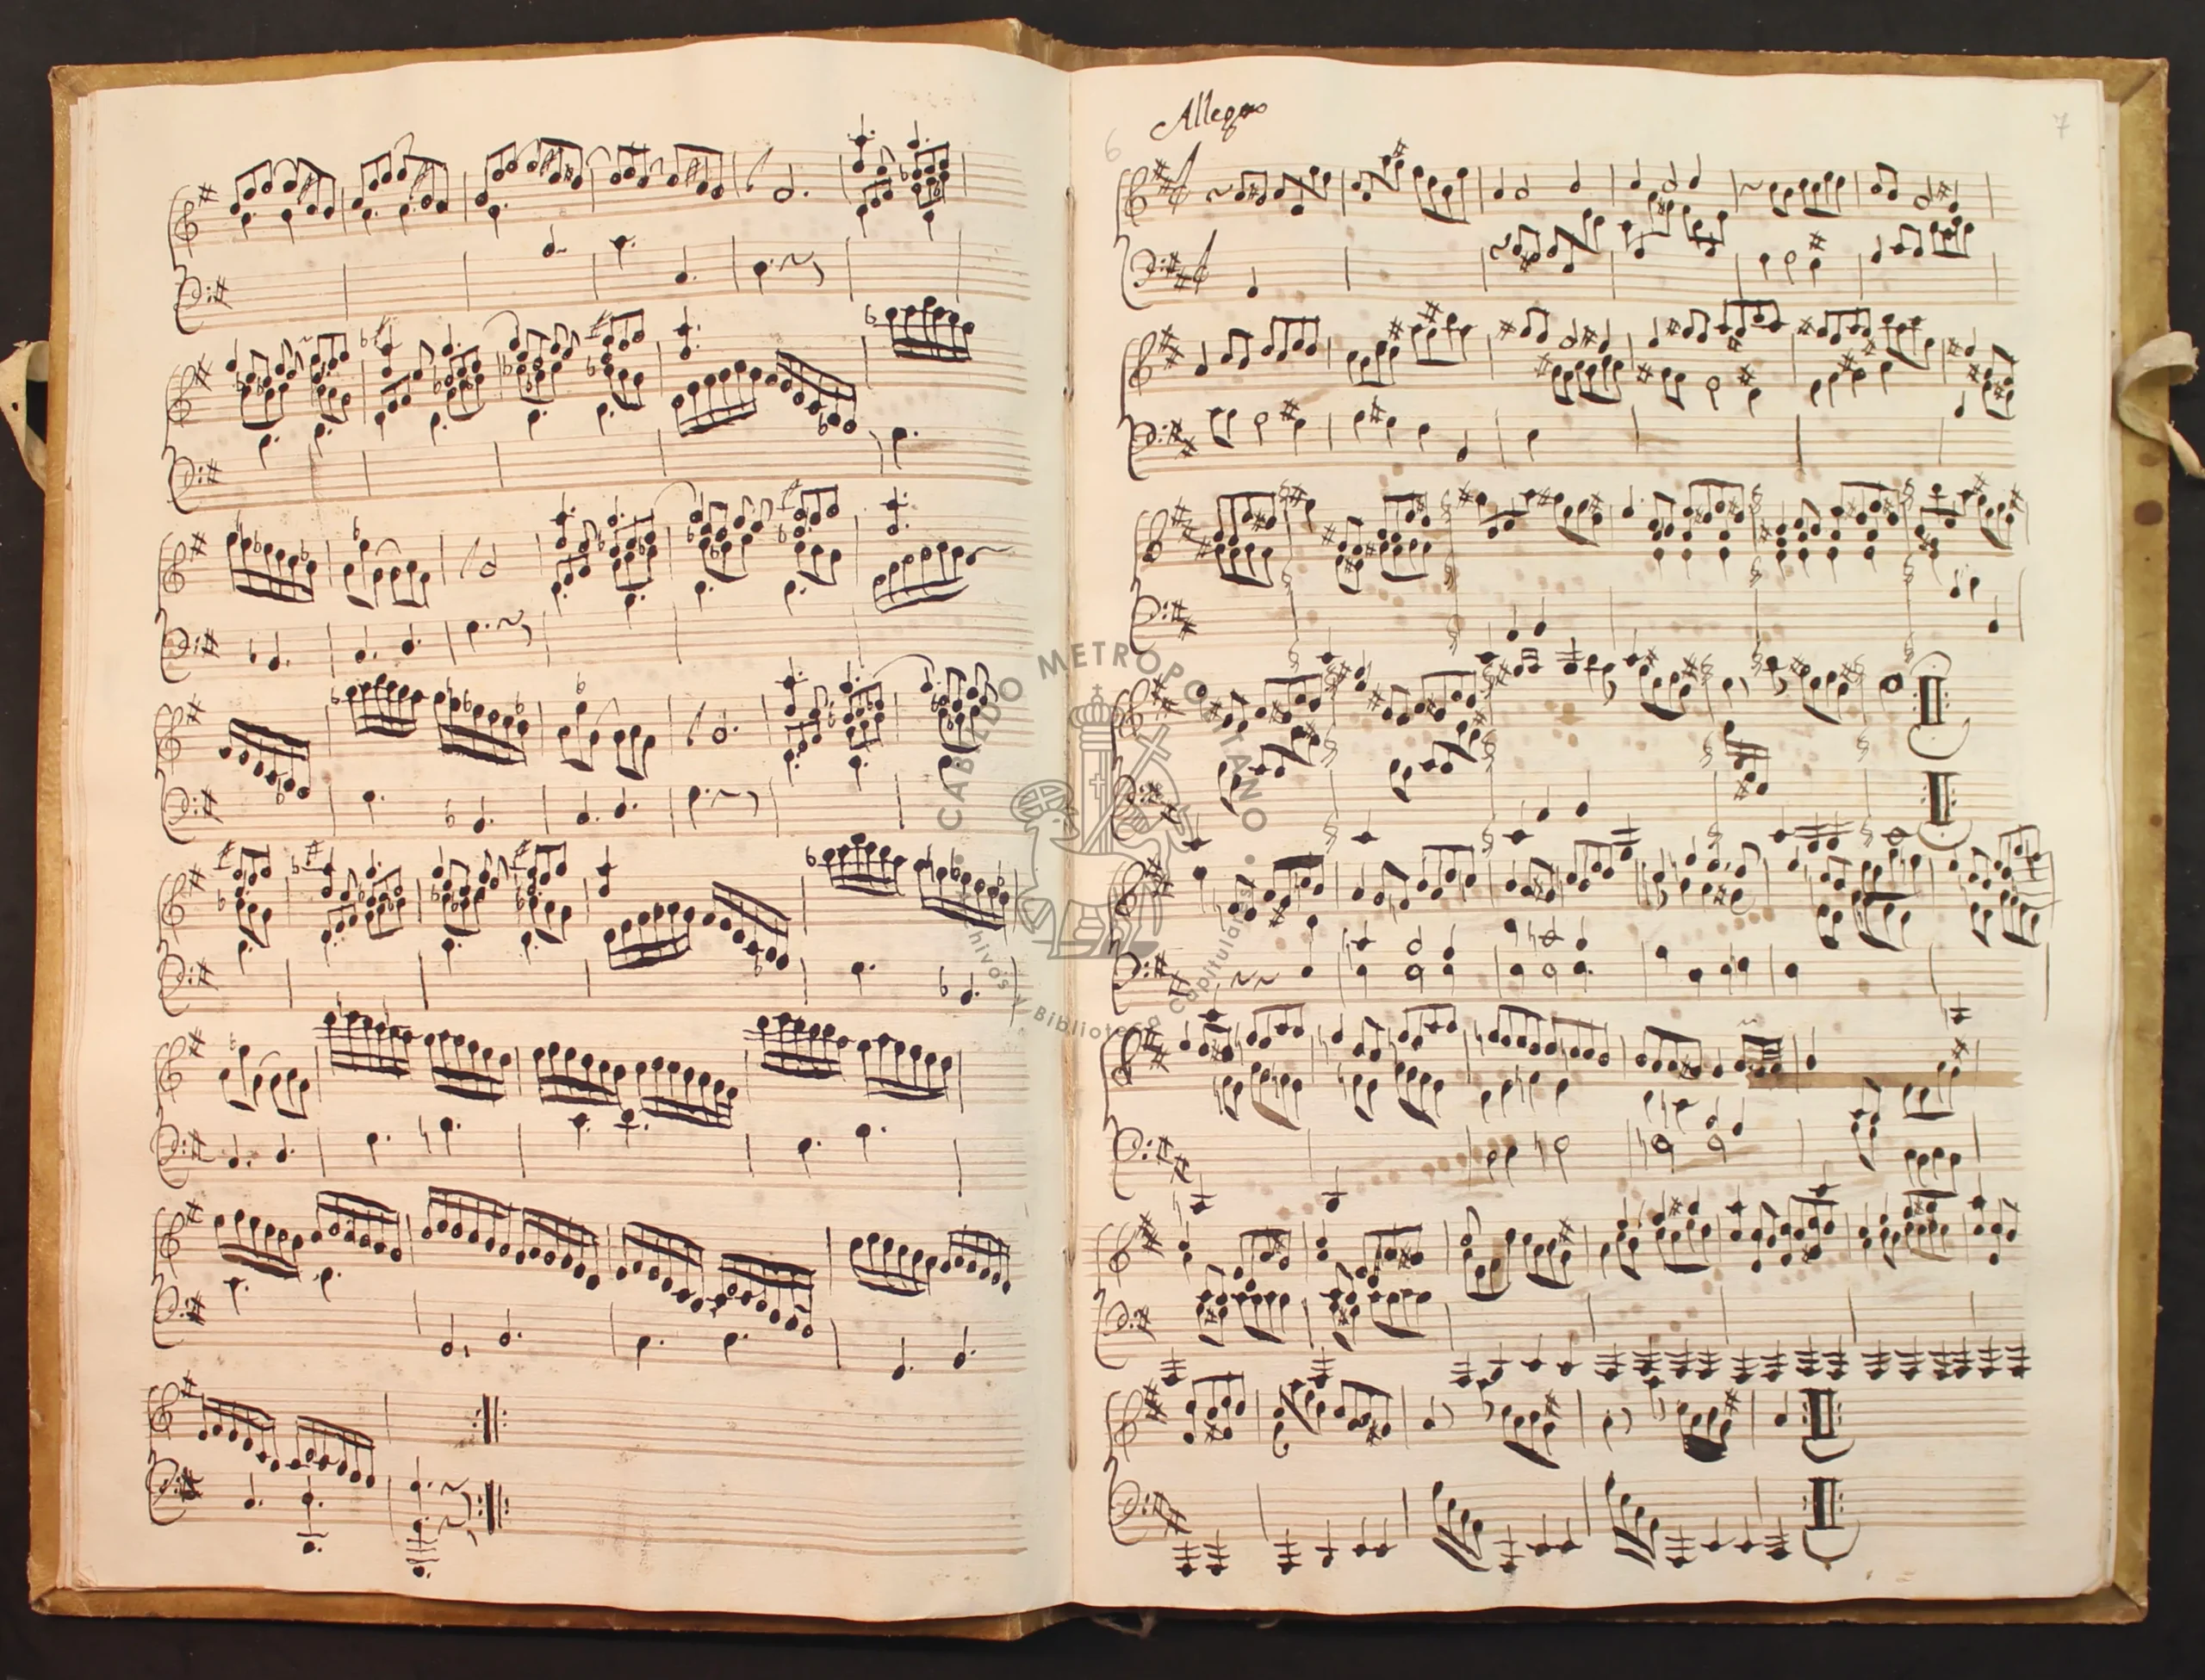 Allegro
6
7
CABILDO METROPOLITANO
Archivos y Biblioteca Capitulares